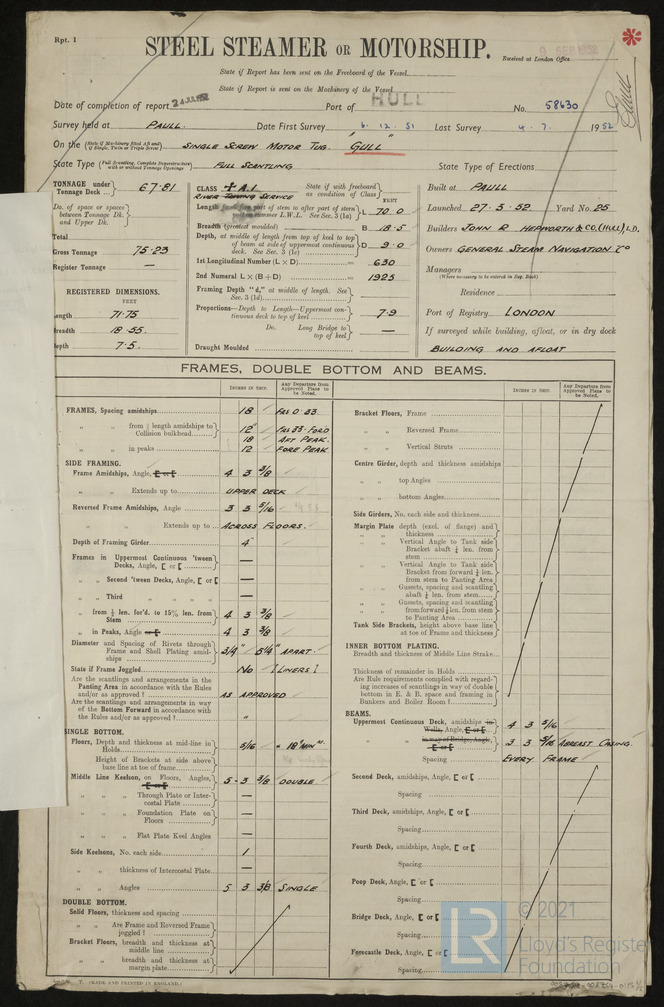 Rpt. 1
STEEL STEAMER OR MOTORSHIP.
Received at London Office
State if Report has been sent on the Freeboard of the Vessel
State if Report is sent on the Machinery of the Vessel
Date of completion of report 24 JUL 1952 Port of HULL No. 58630
Survey held at PAULL. Date First Survey 6. 12. 51 Last Survey 4. 7. 1952
On the (State if Machinery fitted Aft and if Single, Twin or Triple Screw) SINGLE SCREW MOTOR TUG. "GULL"
State Type (Full Scantling, Complete Superstructure with or without Tonnage Openings) FULL SCANTLING State Type of Erections
TONNAGE under Tonnage Deck ... 67.81
Do. of space or spaces between Tonnage Dk. and Upper Dk.
Total
Gross Tonnage 75.23
Register Tonnage —
REGISTERED DIMENSIONS.
FEET
ength 71.75
readth 18.55
epth 7.5
CLASS ✠ A.1. State if with freeboard as condition of Class
RIVER TOWING SERVICE
FEET
L 70.0
Breadth (greatest moulded) B 18.5
Depth, at middle of length from top of keel to top of beam at side of uppermost continuous deck. See Sec. 3 (1c) D 9.0
1st Longitudinal Number (L × D) 630
2nd Numeral L × (B + D) 1925
Framing Depth "d," at middle of length. See Sec. 3 (1d)
Proportions—Depth to Length—Uppermost continuous deck to top of keel 7.9
Do. Long Bridge to top of keel —
Draught Moulded
Built at PAULL
Launched 27.5.52 Yard No. 25
Builders JOHN R HEPWORTH & CO. (HULL) LD.
Owners GENERAL STEAM NAVIGATION Co
Managers
(Where necessary to be entered in Reg. Book)
Residence
Port of Registry LONDON
If surveyed while building, afloat, or in dry dock
BUILDING AND AFLOAT
FRAMES, DOUBLE BOTTOM AND BEAMS.
INCHES IN SHIP. Any Departure from Approved Plans to be Noted.
FRAMES, Spacing amidships 18 FRS 0-33
" " from 1/5 length amidships to Collision bulkhead 12" FRS 33-FORD
18 AFT PEAK.
" " in peaks 12 FORE PEAK
SIDE FRAMING.
Frame Amidships, Angle, [ or [ 4 3 3/8
" " Extends up to UPPER DECK
Reversed Frame Amidships, Angle 3 3 5/16
" " Extends up to ACROSS FLOORS.
Depth of Framing Girder 4"
Frames in Uppermost Continuous 'tween Decks, Angle, [ or [ —
" " Second 'tween Decks, Angle, [ or [ —
" " Third " " —
" " from 1/5 len. for'd. to 15% len. from Stem 4 3 3/8
" " in Peaks, Angle or [ 4 3 3/8
Diameter and Spacing of Rivets through Frame and Shell Plating amidships 3/4" 5 1/4" APART.
State if Frame Joggled No [LINERS]
Are the scantlings and arrangements in the Panting Area in accordance with the Rules and/or as approved? AS APPROVED
Are the scantlings and arrangements in way of the Bottom Forward in accordance with the Rules and/or as approved? "
SINGLE BOTTOM.
Floors, Depth and thickness at mid-line in Holds 5/16 × 18" MIN M.
Height of Brackets at side above base line at toe of frame
Middle Line Keelson, on Floors, Angles, [ or [ 5 - 3 3/8 DOUBLE
" " " Through Plate or Intercostal Plate —
" " " Foundation Plate on Floors —
" " " Flat Plate Keel Angles —
Side Keelsons, No. each side 1
" " thickness of Intercostal Plate —
" " Angles 5 3 3/8 SINGLE
DOUBLE BOTTOM.
Solid Floors, thickness and spacing
" " Are Frame and Reversed Frame joggled?
Bracket Floors, breadth and thickness at middle line
" " breadth and thickness at margin plate
INCHES IN SHIP. Any Departure from Approved Plans to be Noted.
Bracket Floors, Frame
" " Reversed Frame
" " Vertical Struts
Centre Girder, depth and thickness amidships
" " top Angles
" " bottom Angles
Side Girders, No. each side and thickness
Margin Plate depth (excl. of flange) and thickness
" " Vertical Angle to Tank side Bracket abaft 1/4 len. from stem
" " Vertical Angle to Tank side Bracket from forward 1/4 len. from stem to Panting Area
" " Gussets, spacing and scantling abaft 1/4 len. from stem
" " Gussets, spacing and scantling from forward 1/4 len. from stem to Panting Area
Tank Side Brackets, height above base line at toe of Frame and thickness
INNER BOTTOM PLATING.
Breadth and thickness of Middle Line Strake
Thickness of remainder in Holds
Are Rule requirements complied with regarding increases of scantlings in way of double bottom in E. & B. space and framing in Bunkers and Boiler Room?
BEAMS.
Uppermost Continuous Deck, amidships in Wells, Angle, [ or [ 4 3 5/16
" " in way of Bridge, Angle, [ or [ 3 3 5/16 ABREAST CASING.
Spacing EVERY FRAME
Second Deck, amidships, Angle, [ or [
Spacing
Third Deck, amidships, Angle, [ or [
Spacing
Fourth Deck, amidships, Angle, [ or [
Spacing
Poop Deck, Angle, [ or [
Spacing
Bridge Deck, Angle, [ or [
Spacing
Forecastle Deck, Angle, [ or [
Spacing
(MADE AND PRINTED IN ENGLAND.)
LR
© 2021
Lloyd's Register
Foundation